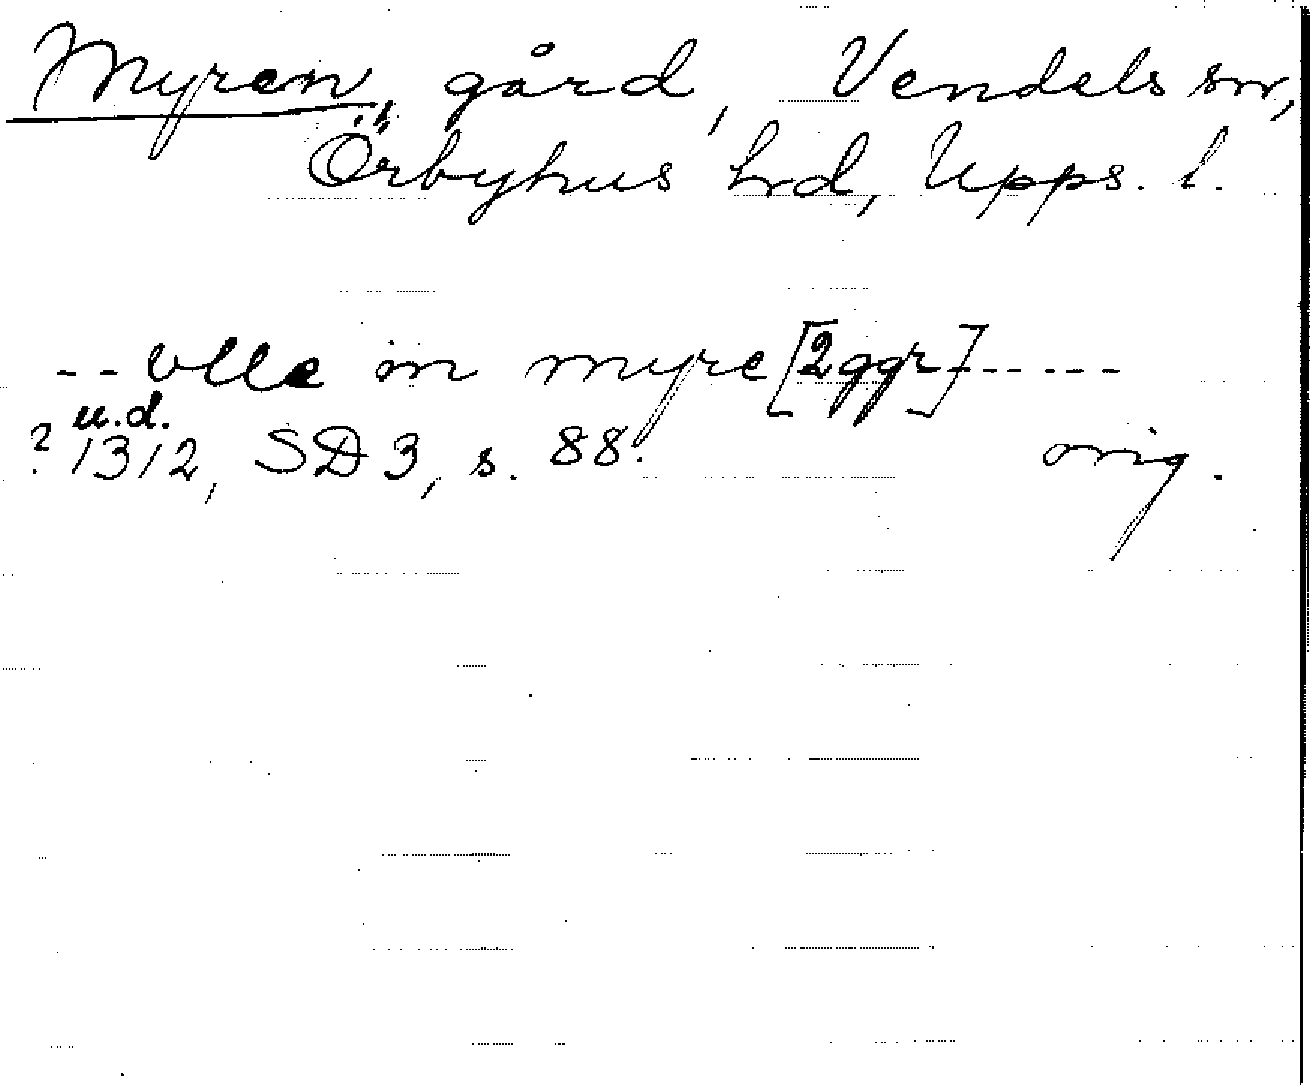 Myren, gård, Vendels sn,
Örbyhus hrd, Upps. l.
-- olle in myre [2ggr] -----
u.d.
? 1312, SD 3, s. 88. orig.